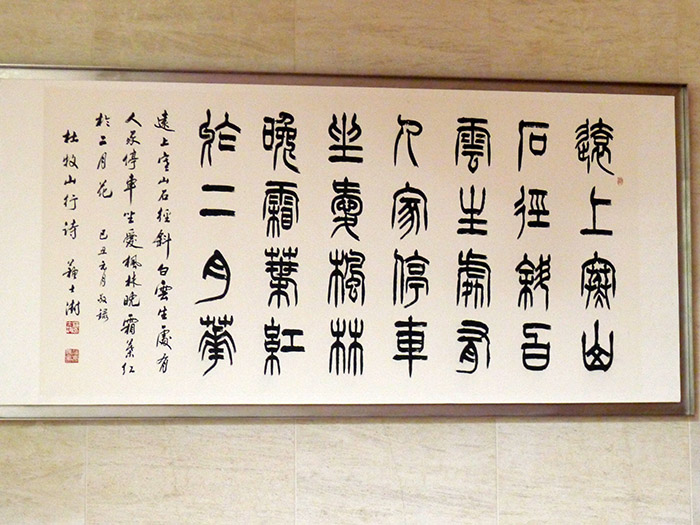 遠上寒山
石徑斜白
雲生處有
人家停車
坐愛楓林
晚霜葉紅
於二月華
遠上寒山石徑斜白雲生處有
人家停車坐愛楓林晚霜葉紅
於二月花 己丑六月敬録
杜牧山行诗 蘇士澍